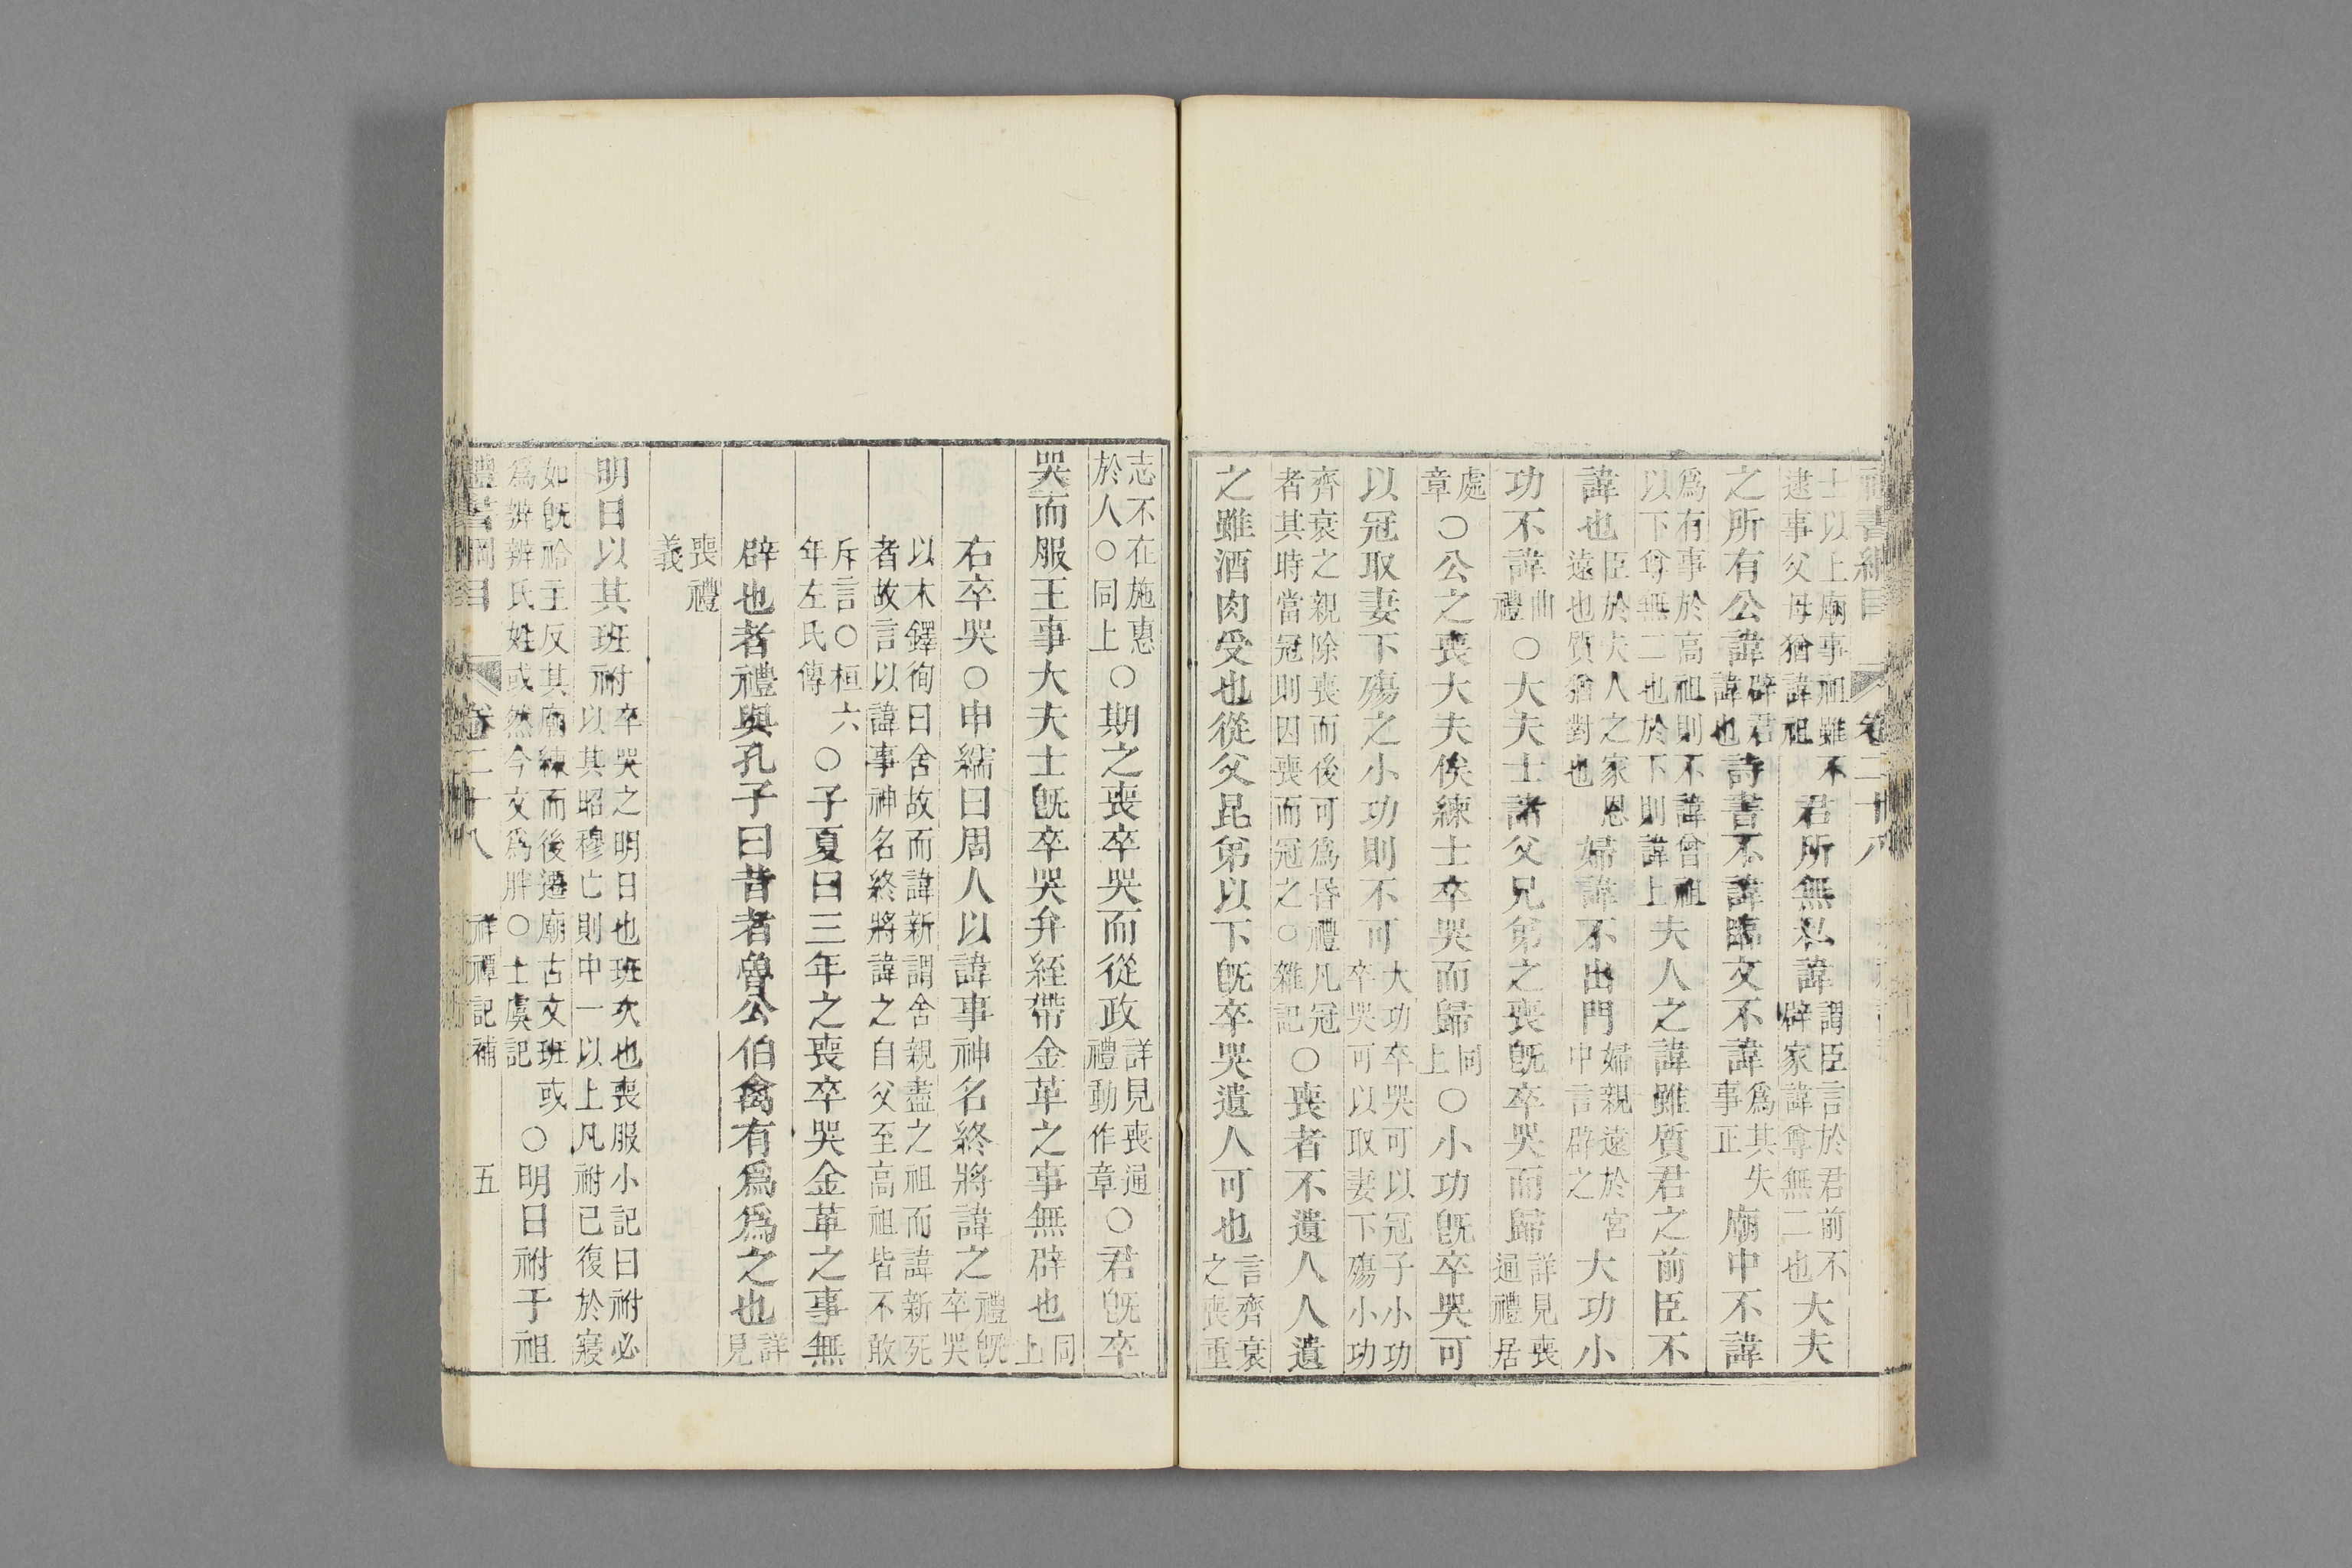 禮書綱目 卷二十八
士以上廟事祖雖不逮事父母猶諱祖君所無私諱謂臣言於君前不辟家諱尊無二也大夫
之所有公諱辟君諱也詩書不諱臨文不諱爲其失事正廟中不諱
爲有事於高祖則不諱曾祖以下尊無二也於下則諱上夫人之諱雖質君之前臣不
諱也臣於夫人之家恩遠也質猶對也婦諱不出門婦親遠於宮中言辟之大功小
功不諱曲禮○大夫士諸父兄弟之喪旣卒哭而歸詳見喪通禮居
處章○公之喪大夫俟練士卒哭而歸同上○小功旣卒哭可
以冠取妻下殤之小功則不可大功卒哭可以冠子小功卒哭可以取妻下殤小功
齊衰之親除喪而後可爲昏禮凡冠者其時當冠則因喪而冠之○雜記○喪者不遺人人遺
之雖酒肉受也從父昆弟以下旣卒哭遺人可也言齊衰之喪重
志不在施惠於人○同上○期之喪卒哭而從政詳見喪通禮動作章○君旣卒
哭而服王事大夫士旣卒哭弁絰帶金革之事無辟也同上
右卒哭○申繻曰周人以諱事神名終將諱之禮旣卒哭
以木鐸徇曰舍故而諱新謂舍親盡之祖而諱新死者故言以諱事神名終將諱之自父至高祖皆不敢
斥言○桓六年左氏傳○子夏曰三年之喪卒哭金革之事無
辟也者禮與孔子曰昔者魯公伯禽有爲爲之也詳見
喪禮義
明日以其班祔卒哭之明日也班次也喪服小記曰祔必以其昭穆亡則中一以上凡祔已復於寢
如旣祫主反其廟練而後遷廟古文班或爲辨辨氏姓或然今文爲胖○士虞記○明日祔于祖
禮書綱目 卷二十八 祥禫記補 五